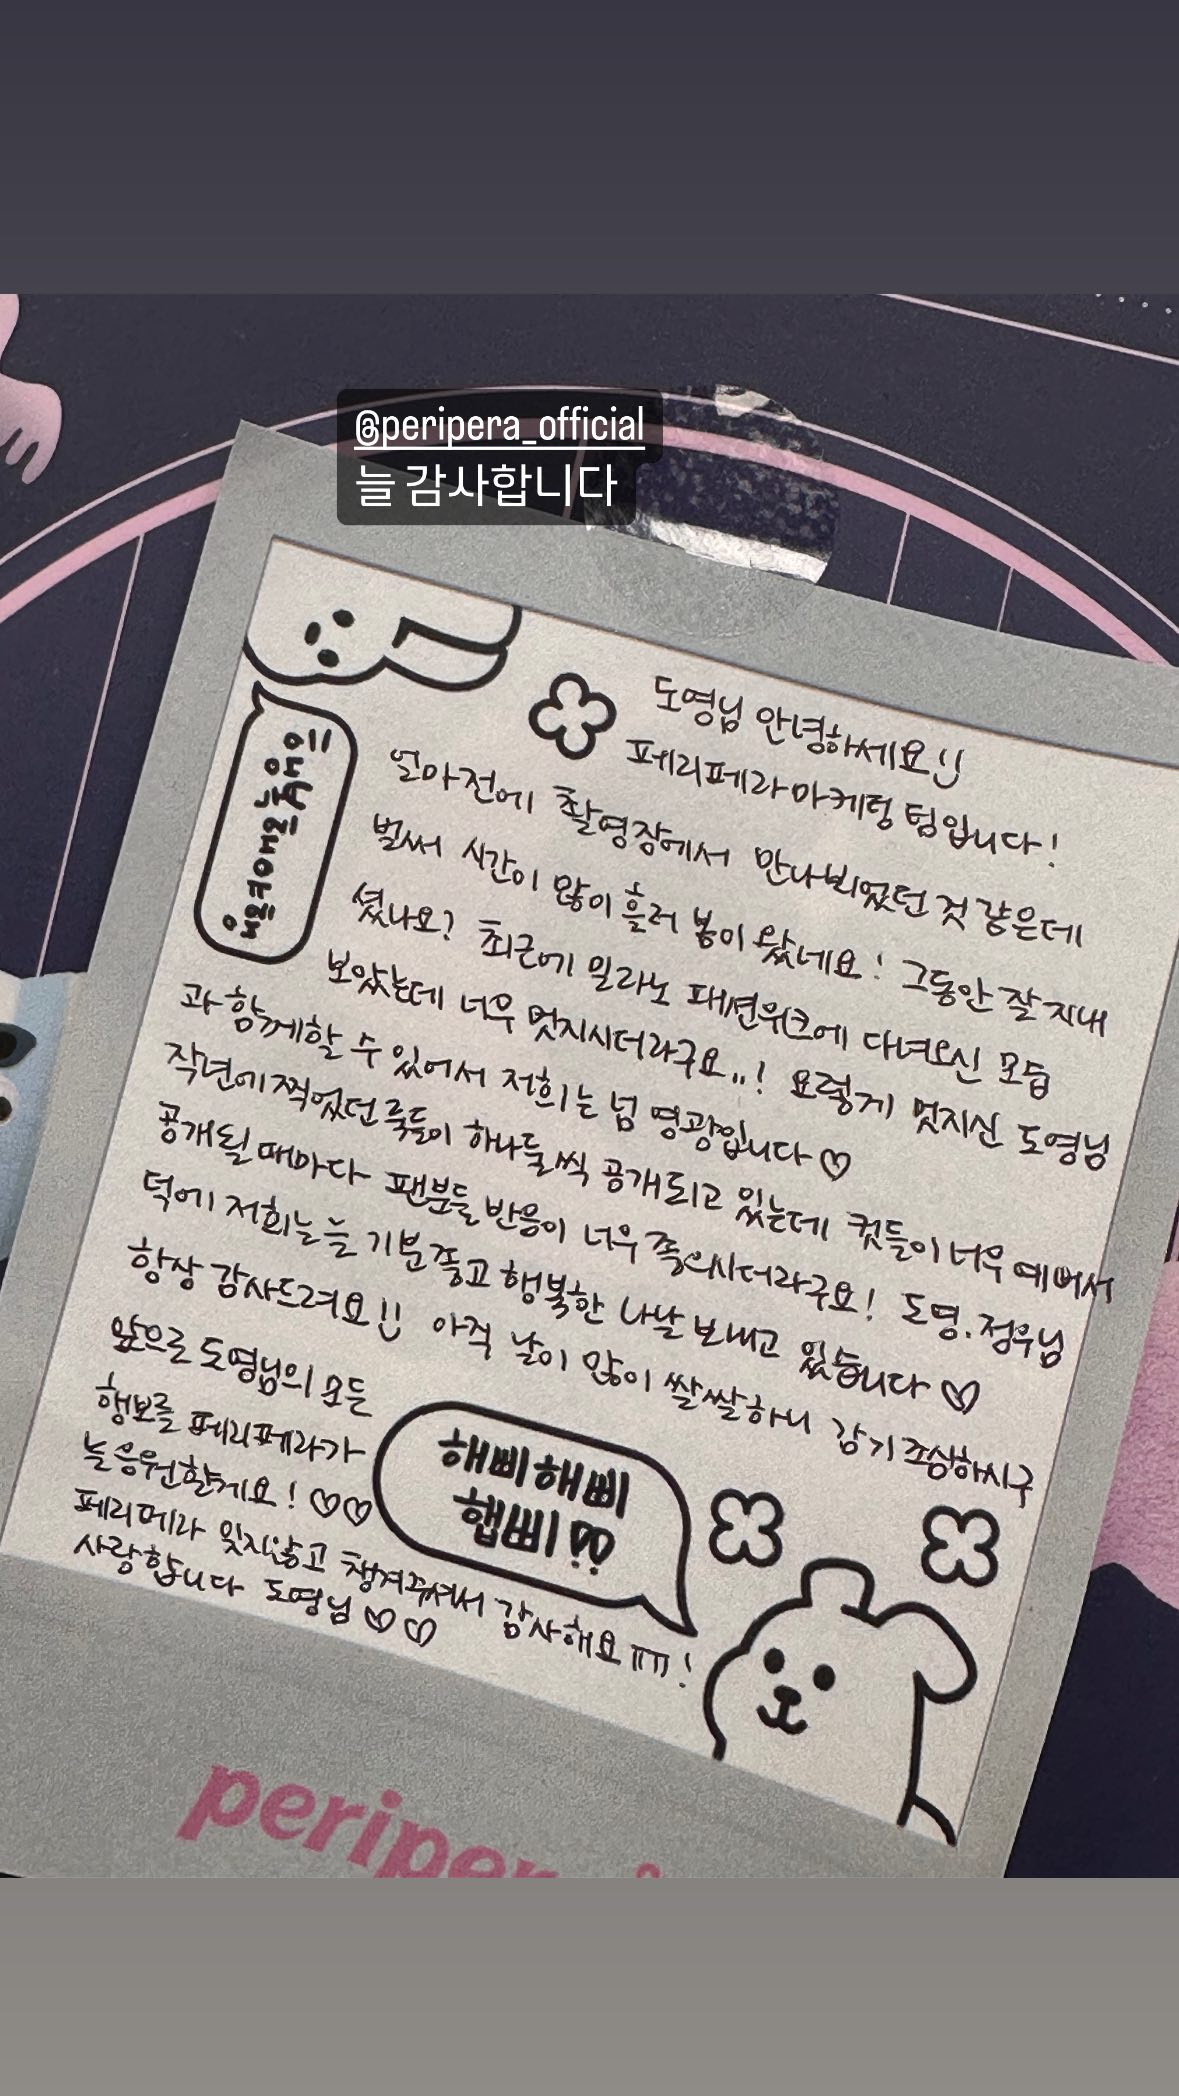 @peripera_official
늘 감사합니다
도영님 안녕하세요!!
페리페라 마케팅 팀입니다!
얼마전에 촬영장에서 만나뵈었던 것 같은데
벌써 시간이 많이 흘러 봄이 왔네요! 그동안 잘 지내
셨나요? 최근에 밀라노 패션위크에 다녀오신 모습
보았는데 너무 멋지시더라구요..! 요렇게 멋지신 도영님
과 함께할 수 있어서 저희는 넘 영광입니다♡
작년에 찍었던 룩들이 하나둘씩 공개되고 있는데 컷들이 너무 예뻐서
공개될 때마다 팬분들 반응이 너무 폭발이시더라구요! 도영, 정우님
덕에 저희는 늘 기분좋고 행복한 나날 보내고 있습니다♡
항상 감사드려요!! 아직 날이 많이 쌀쌀하니 감기조심하시구
앞으로 도영님의 모든
행보를 페리페라가
늘 응원할게요! ♡♡
페리페라 잊지않고 챙겨주셔서 감사해요ㅠㅠ!
사랑합니다 도영님♡♡
해삐해삐
햅삐!?
peripera